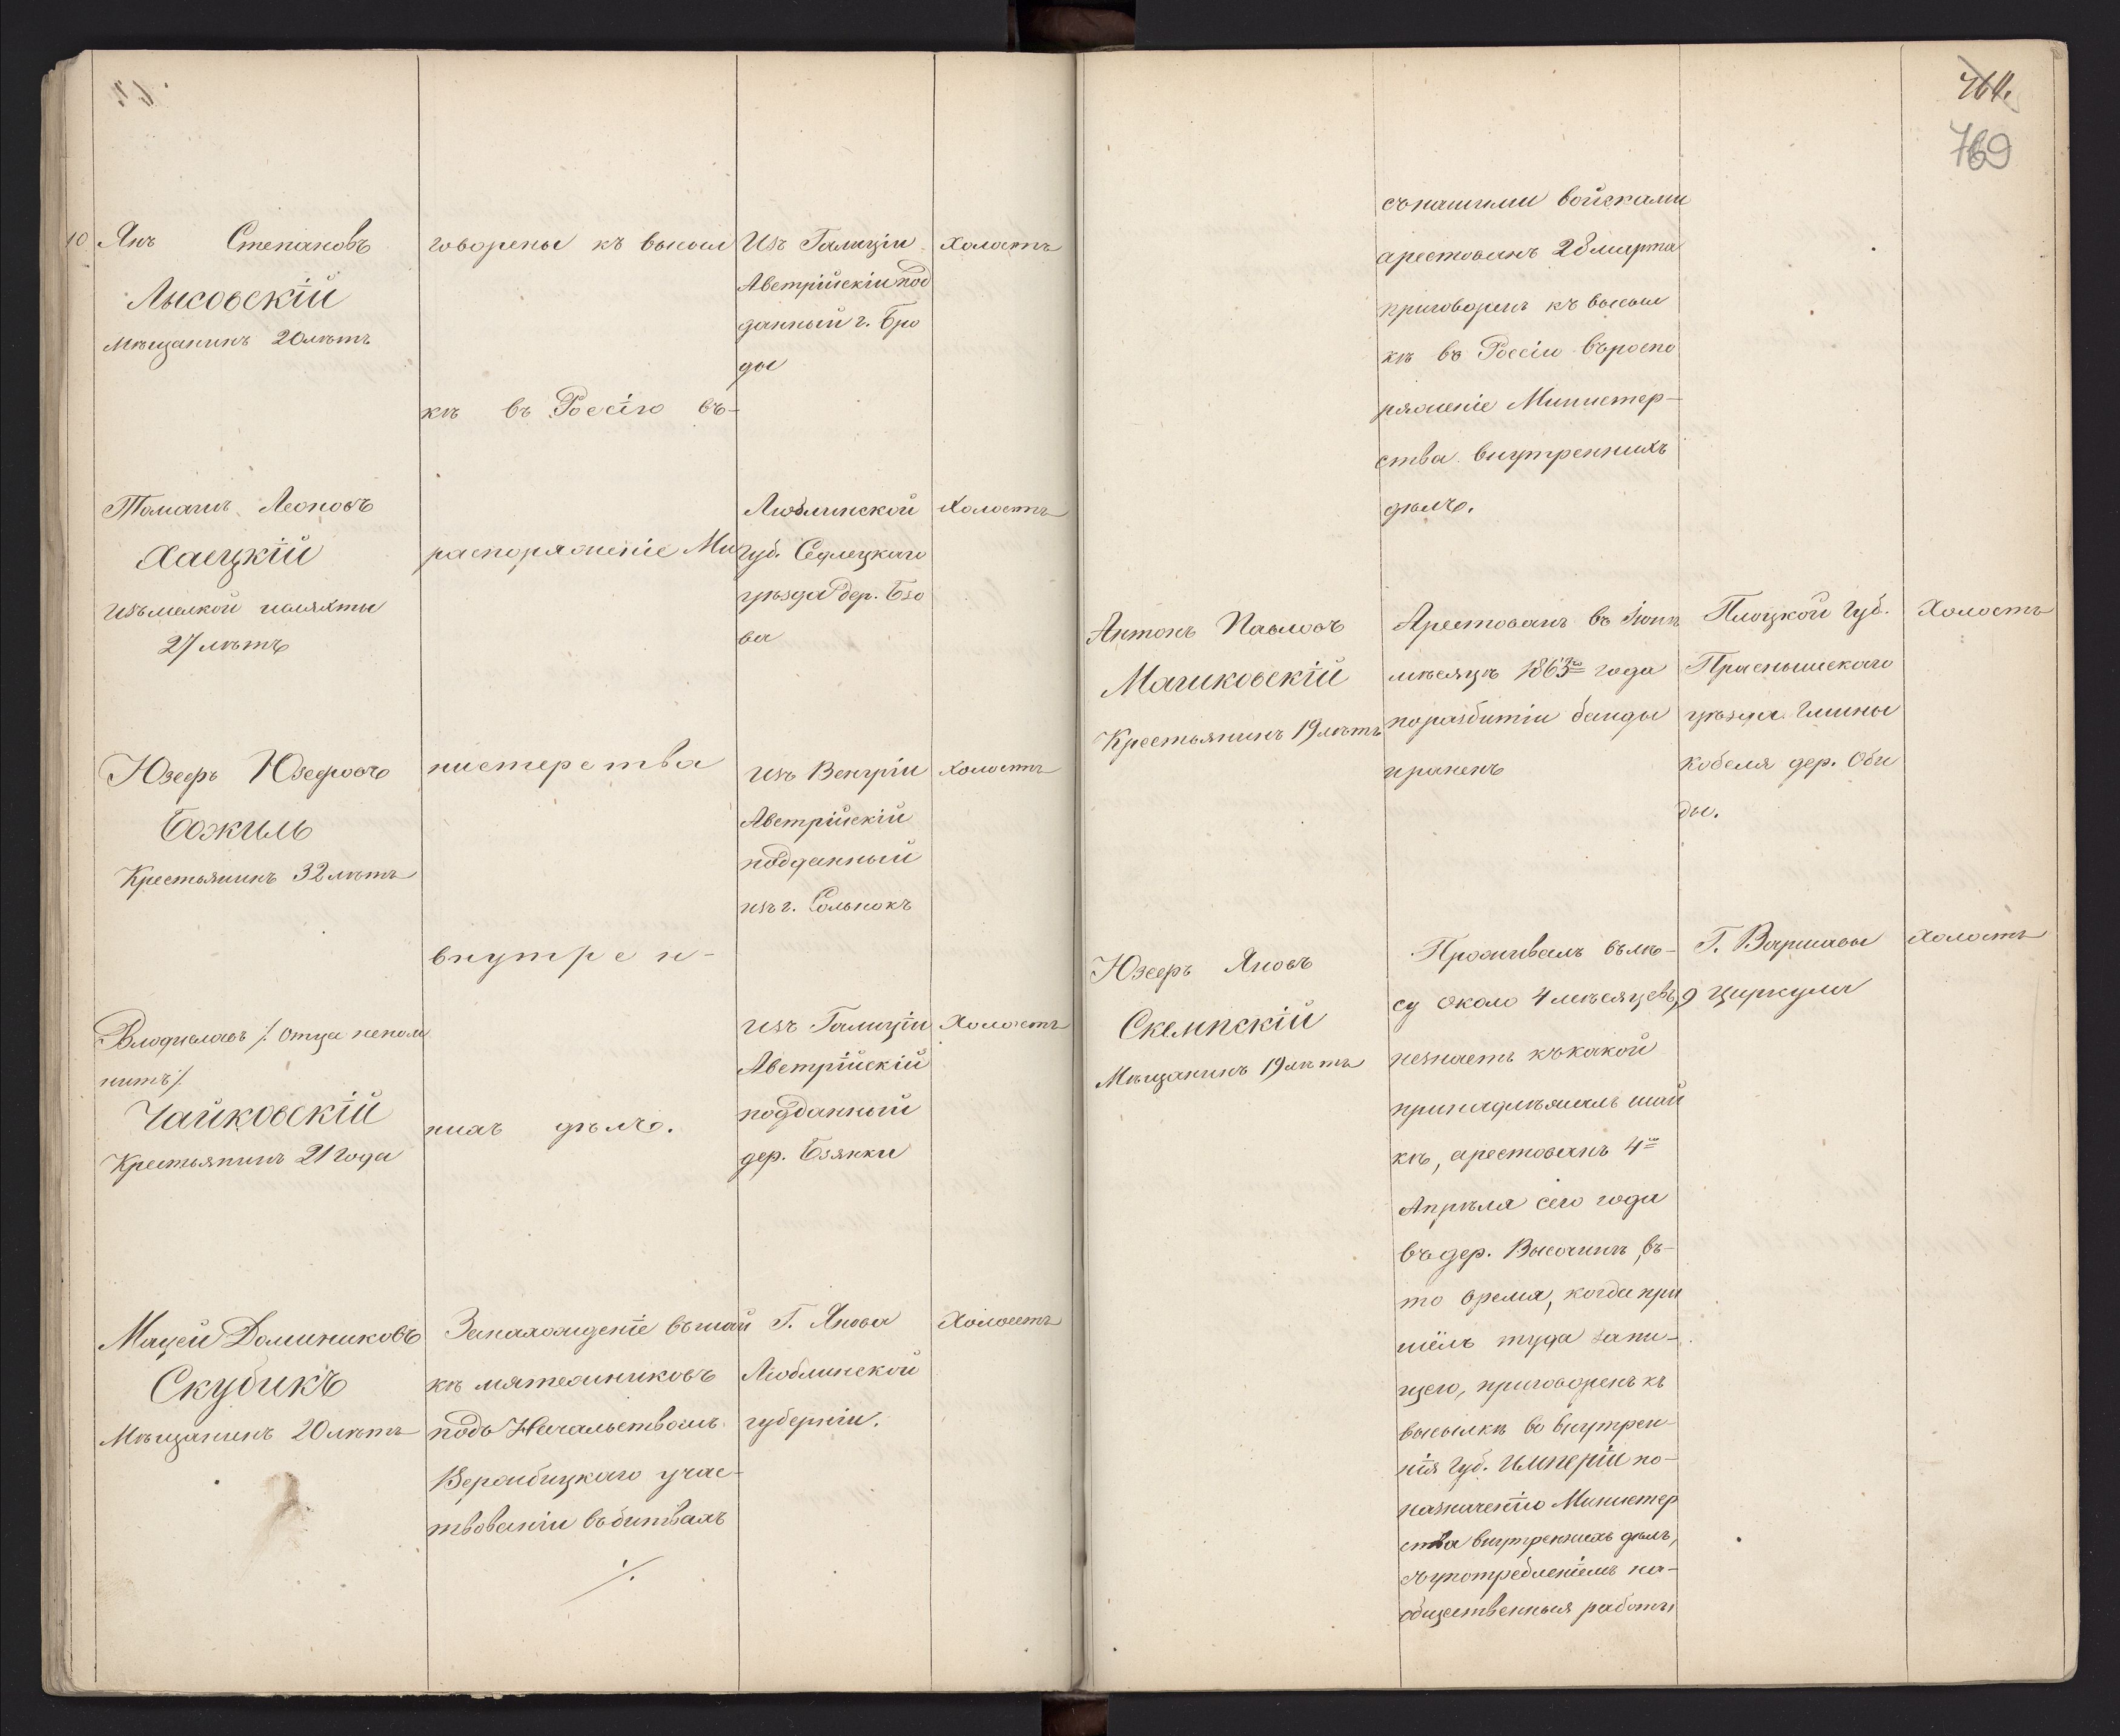 10 Янъ Степановъ
Лысовскій
Мѣщанинъ 20 лѣтъ
говорены къ высыл
Изъ Галиціи
Австрійскій под
данный г. Бро
ды
Холостъ
кѣ въ Россію въ-
Томашъ Леоновъ
Хаецкій
изъ мелкой шляхты
27 лѣтъ
распоряженіе Ми
Люблинской
губ. Седлецкаго
уѣзда дер. Бзо
ва
Холостъ
Юзефъ Юзефовъ
Божиль
Крестьянинъ 32 лѣтъ
нистерства
изъ Венгріи
Австрійскій
подданный
изъ г. Сольнокъ
Холостъ
внутрен-
Владиславъ /. отца непом
нитъ /.
Чайковскій
Крестьянинъ 21 года
нихъ дѣлъ.
изъ Галиціи
Австрійскій
подданный
дер. Бзянки
Холостъ
Мацей Доминиковъ
Скубикъ
Мѣщанинъ 20 лѣтъ
За нахожденіе въ шай
кѣ мятежниковъ
подъ Начальствомъ
Вержбицкаго учас-
твованіи въ битвахъ
/.
Г. Янова
Люблинской
губерніи.
Холостъ
764.
769
съ нашими войсками
арестованъ 28 марта
приговоренъ къ высыл
кѣ въ Россію въ распо
ряженіе Министер-
ства внутреннихъ
дѣлъ.
Антонъ Павловъ
Машковскій
Крестьянинъ 19 лѣтъ
Арестованъ въ Іюнѣ
мѣсяцѣ 1863го года
по разбитіи банды
израненъ
Плоцкой Губ.
Праснышскаго
уѣзда Гмины
кобеля дер. Оби
ды.
Холостъ
Юзефъ Яновъ
Скемпскій
Мѣщанинъ 19 лѣтъ
Проживалъ въ лѣ-
су около 4 мѣсяцевъ,
незнаетъ къ какой
принадлежалъ шай
кѣ, арестованъ 4го
Апрѣля сего года
въ дер. Высочинѣ, въ-
то время, когда при
шёлъ туда за пи-
щею, приговоренъ къ
высылкѣ во внутрен-
нія Губ. Имперіи по-
назначенію Министер
ства внутреннихъ дѣлъ,
съ употребленіемъ на-
общественныя работы
Г. Варшавы
9 Циркула
Холостъ